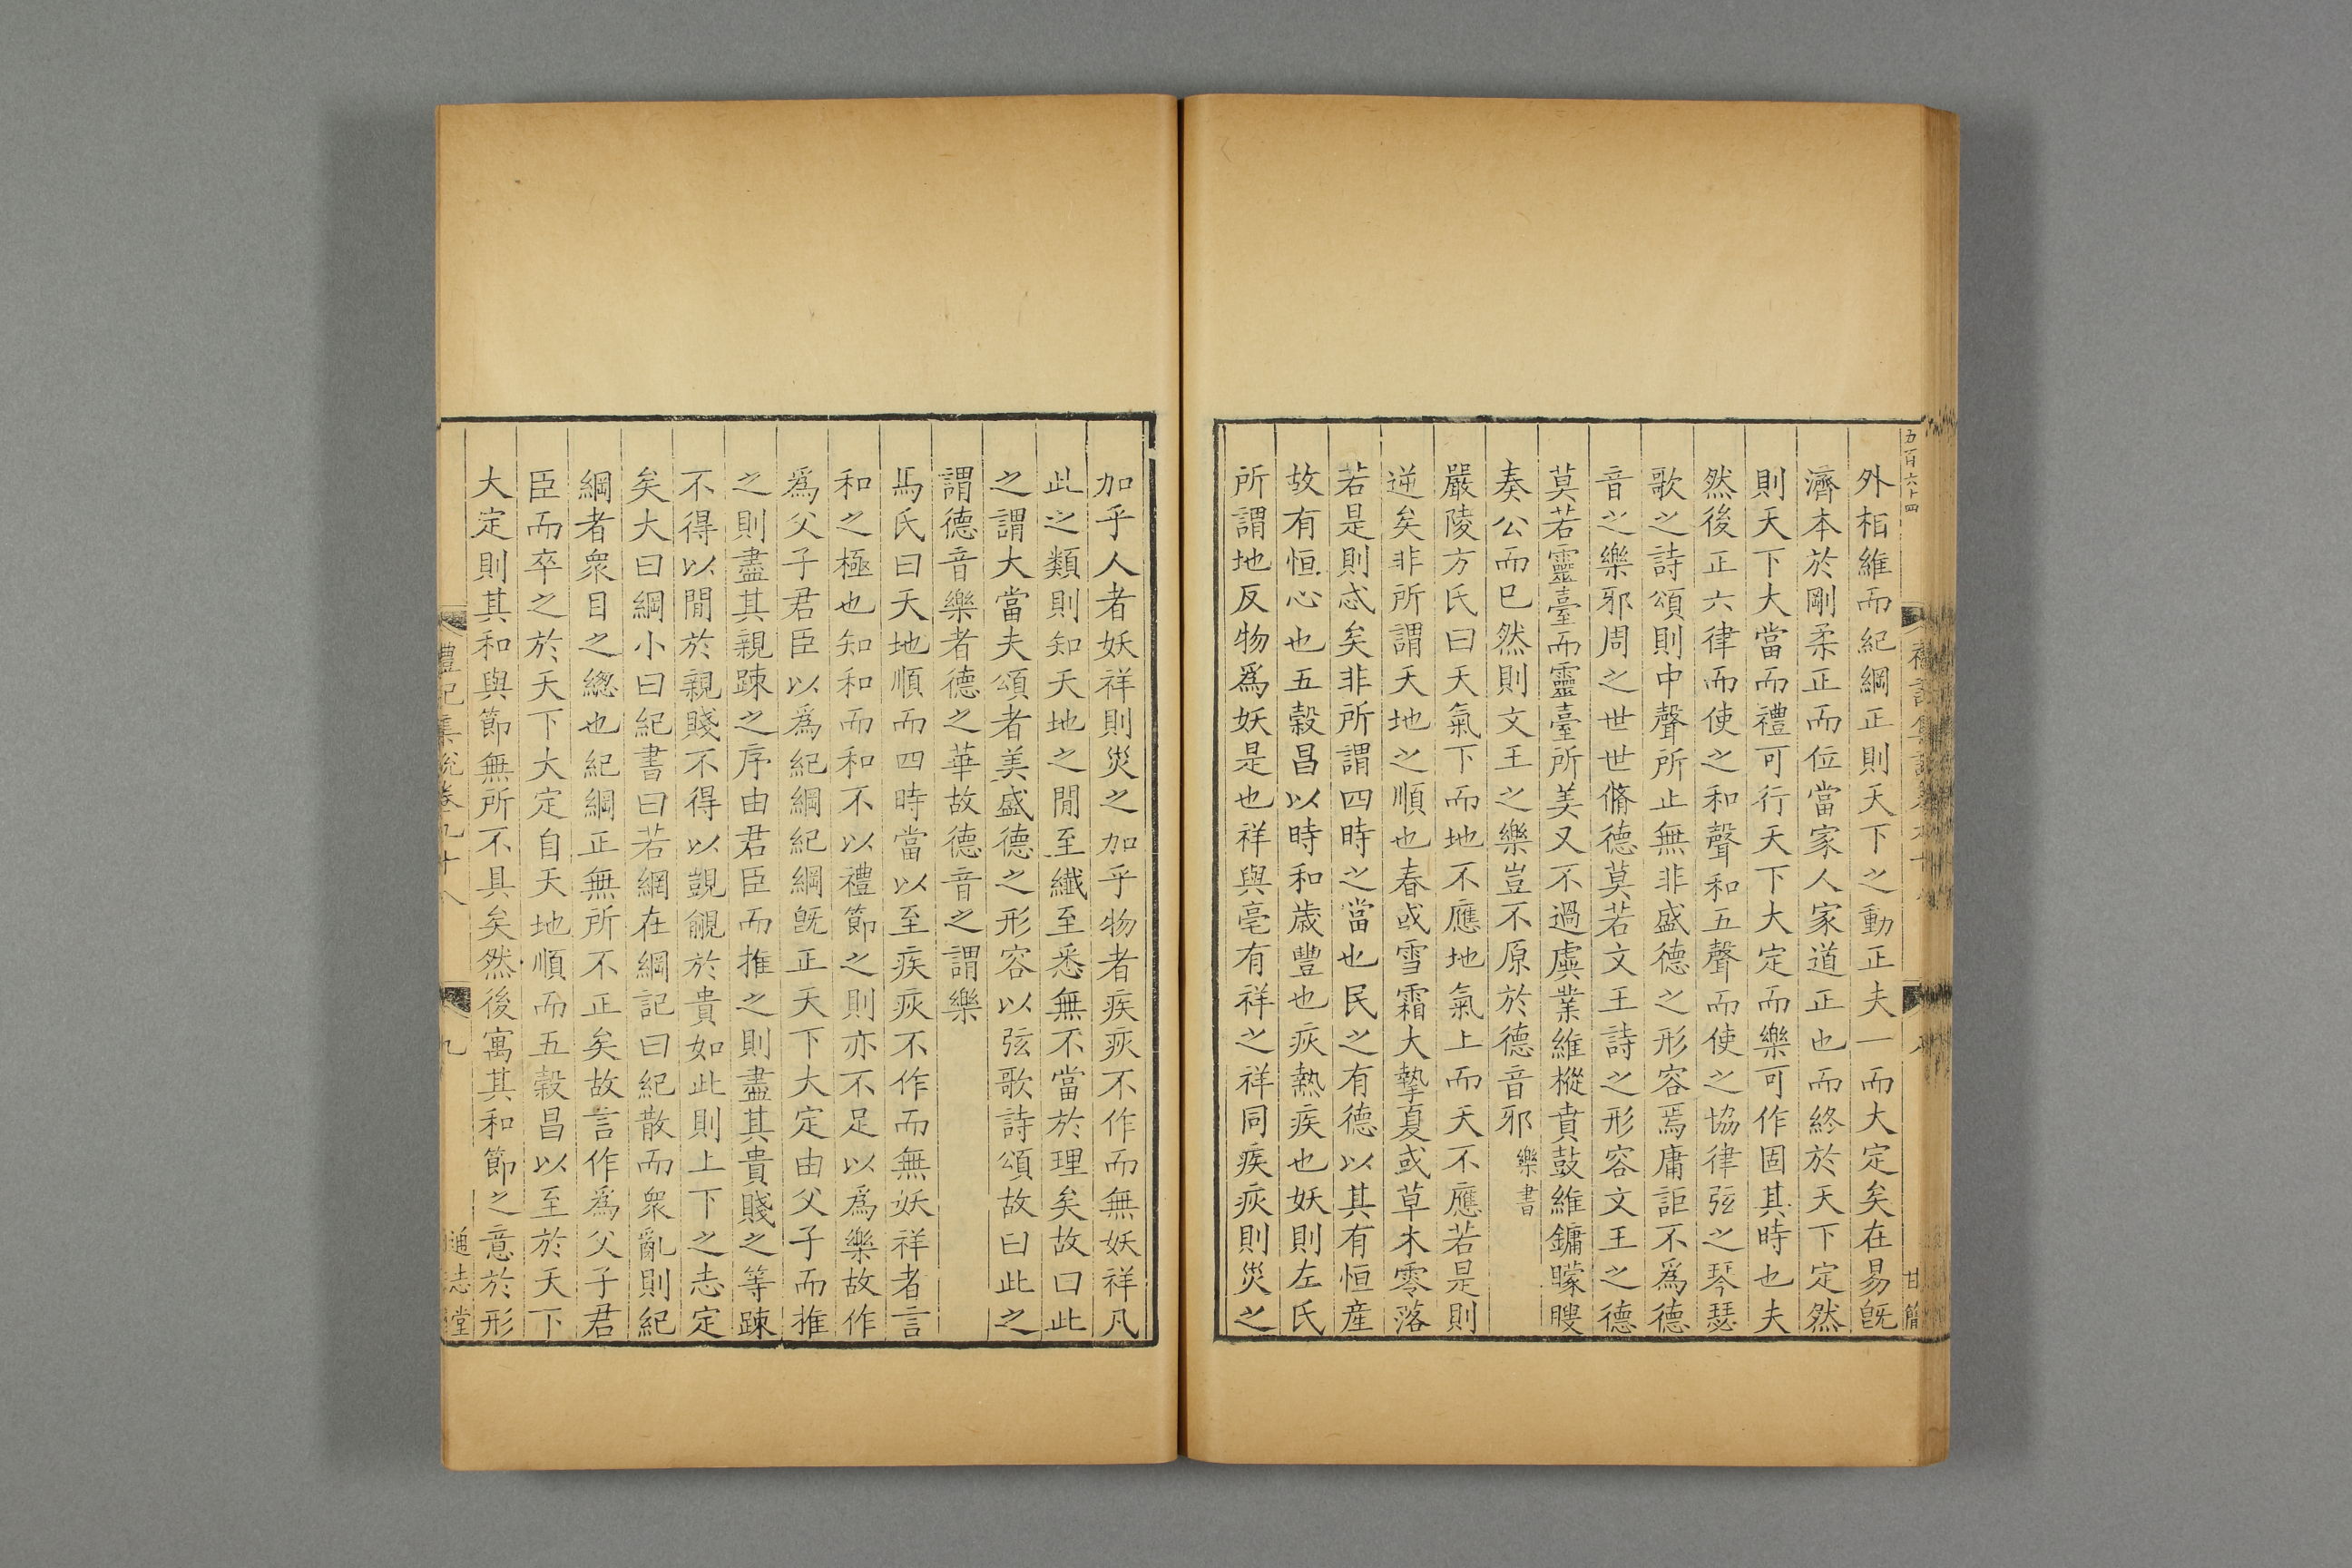 五百六十四
外相維而紀綱正則天下之動正夫一而大定矣在易旣
濟本於剛柔正而位當家人家道正也而終於天下定然
則天下大當而禮可行天下大定而樂可作固其時也夫
然後正六律而使之和聲和五聲而使之協律弦之琴瑟
歌之詩頌則中聲所止無非盛德之形容焉庸詎不爲德
音之樂邪周之世世脩德莫若文王詩之形容文王之德
莫若靈臺而靈臺所美又不過虡業維樅賁鼓維鏞矇瞍
奏公而已然則文王之樂豈不原於德音邪樂書
嚴陵方氏曰天氣下而地不應地氣上而天不應若是則
逆矣非所謂天地之順也春或雪霜大摯夏或草木零落
若是則忒矣非所謂四時之當也民之有德以其有恒産
故有恒心也五穀昌以時和歲豐也疢熱疾也妖則左氏
所謂地反物爲妖是也祥與亳有祥之祥同疾疢則災之
甘簡
加乎人者妖祥則災之加乎物者疾疢不作而無妖祥凡
此之類則知天地之閒至纖至悉無不當於理矣故曰此
之謂大當夫頌者美盛德之形容以弦歌詩頌故曰此之
謂德音樂者德之華故德音之謂樂
馬氏曰天地順而四時當以至疾疢不作而無妖祥者言
和之極也知和而和不以禮節之則亦不足以爲樂故作
爲父子君臣以爲紀綱紀綱旣正天下大定由父子而推
之則盡其親踈之序由君臣而推之則盡其貴賤之等踈
不得以閒於親賤不得以覬覦於貴如此則上下之志定
矣大曰綱小曰紀書曰若網在綱記曰紀散而衆亂則紀
綱者衆目之總也紀綱正無所不正矣故言作爲父子君
臣而卒之於天下大定自天地順而五穀昌以至於天下
大定則其和與節無所不具矣然後寓其和節之意於形
禮記集說卷九十八
九
通志堂